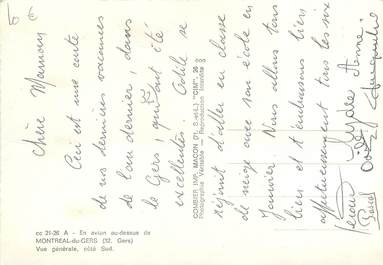 6 €
Chère Mamour
Ceci est une carte
de nos dernières vacances
de l'an dernier, dans
le Gers, qui ont été
excellentes. Odile se
réjouit d'aller en classe
de neige avec son école en
Janvier. Nous allons tous
bien et t'embrassons bien
affectueusement tous les six
Odile
Pascal
Anne
Jacqueline
COMBIER IMP. MACON (71, S.-et-L.) "CIM".
Photographie Véritable — Reproduction Interdite
cc 21-26 A - En avion au-dessus de
MONTREAL-du-GERS (32, Gers)
Vue générale, côté Sud.